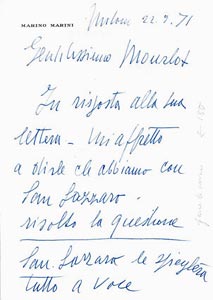 MARINO MARINI
Milano 22.9.71
Gentilissimo Mourlot
In risposta alla sua
lettera - mi affretto
a dirle che abbiamo con
San Lazzaro -
risolto la questione
San Lazzaro le spiegherà
tutto a voce